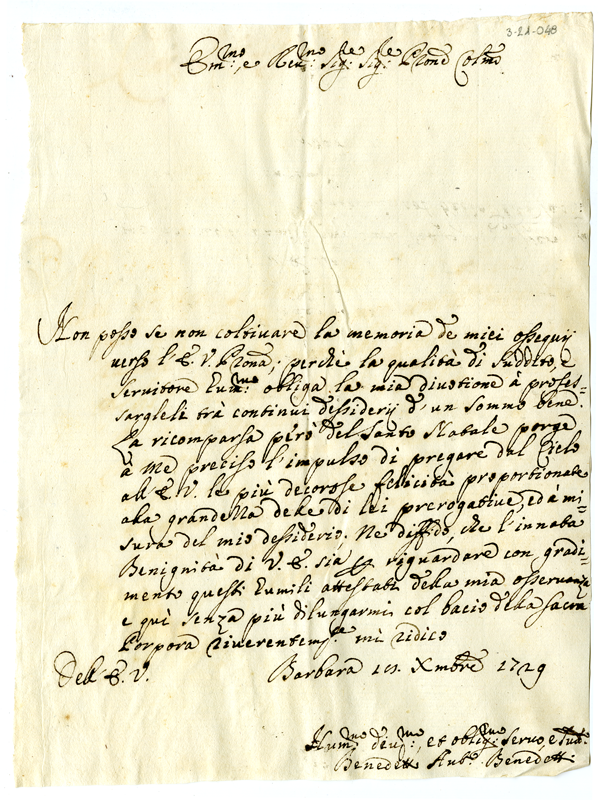 3-21-048
Em:mo, e Rev:mo Sig:re Sig:re Prone Colmo
Non posso se non coltivare la memoria de miei ossequij
verso l'E. V. Prona; perchè la qualità di Suddito, e
Servitore Hum:mo obliga la mia divotione à profes=
sargleli trà continui dessiderij d'un sommo bene.
La ricomparsa però del Santo Natale porge
à me preciso l'impulso di pregare dal Cielo
all'E. V. le più decorose felicità proportionate
alla grandezza delle di lei prerogative, ed à mi=
sura del mio dessiderio; Ne diffido, che l'innata
Benignità di V. E. sia riguardare con gradi=
mento questi humili attestati della mia osservanza
e quì senza più dilungarmi col bacio della Sacra
Porpora riverentem:te mi ridico
Dell'E. V. Barbara Xmbre 1729
Hum:mo dev:mo, et oblig:mo Servo, e Sud:
Benedett Benedetti